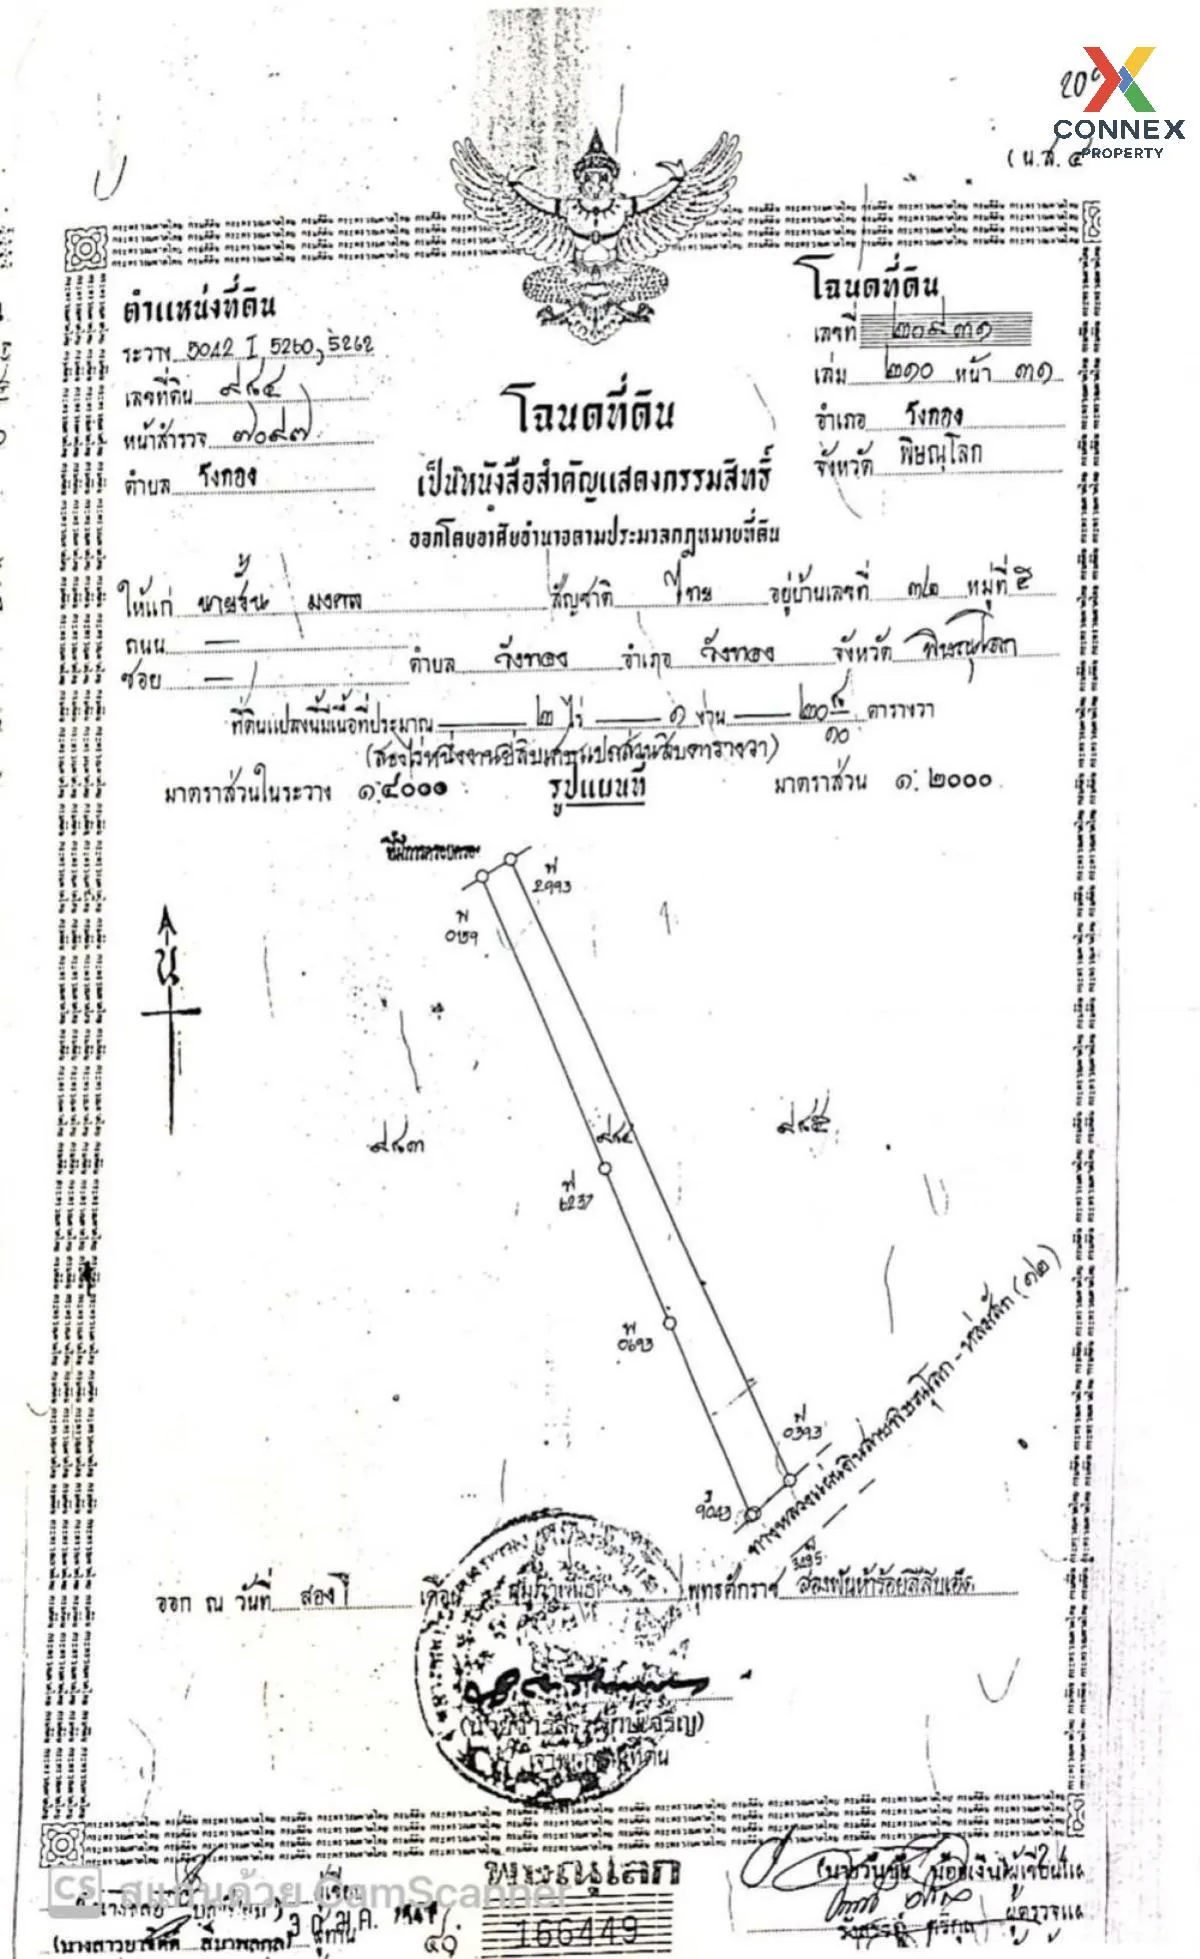 CONNEX
PROPERTY
(น.ส.๔
ตำแหน่งที่ดิน
ระวาง 5042 I 5260, 5262
เลขที่ดิน ๙๘๔
หน้าสำรวจ ๗๐๙๗
ตำบล วังทอง
โฉนดที่ดิน
เลขที่ ๒๐๙๓๑
เล่ม ๒๑๐ หน้า ๓๑
อำเภอ วังทอง
จังหวัด พิษณุโลก
โฉนดที่ดิน
เป็นหนังสือสำคัญแสดงกรรมสิทธิ์
ออกโดยอาศัยอำนาจตามประมวลกฎหมายที่ดิน
ให้แก่ มงคล สัญชาติ ไทย อยู่บ้านเลขที่ ๓๒ หมู่ที่ ๕
ถนน —
ซอย —
ตำบล วังทอง อำเภอ วังทอง จังหวัด พิษณุโลก
ที่ดินแปลงนี้มีเนื้อที่ประมาณ ๒ ไร่ ๑ งาน ๒๐ ๘/๑๐ ตารางวา
(สองไร่หนึ่งงานยี่สิบเศษแปดส่วนสิบตารางวา)
มาตราส่วนในระวาง ๑:๔๐๐๐ รูปแผนที่ มาตราส่วน ๑:๒๐๐๐
ที่มีการครอบครอง
2993
0159
น
๙๘๓
๙๘๔
๙๘๕
6237
0693
0393
9043
ทางหลวงแผ่นดินสายพิษณุโลก - หล่มสัก (๑๒)
3195
ออก ณ วันที่ สอง เดือน กุมภาพันธ์ พุทธศักราช สองพันห้าร้อยสี่สิบเอ็ด
เจ้าพนักงานที่ดิน
พิษณุโลก
166449
CS สแกนด้วย CamScanner
ผู้เขียน
ผู้ทาน
ผู้เขียนแผนที่
ผู้ตรวจแผนที่